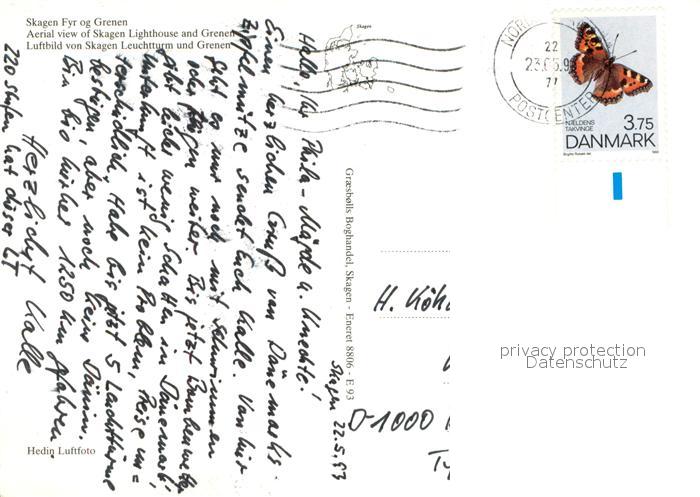 Skagen Fyr og Grenen
Aerial view of Skagen Lighthouse and Grenen
Luftbild von Skagen Leuchtturm und Grenen
Skagen
Skagen 22.5.93
Hallo, Ihr Phila-Mägde u. Knechte!
Einen herzlichen Gruß van Dänemarks
Zipfelmütze sendet Euch Kalle. Von hier
geht es nur noch mit Schwimmen
oder fliegen weiter. Bis jetzt Bombenwetter
gibt leider wenig Schatten in Dänemark,
Unterkunft ist kein Problem, Preise un=
terschiedlich, Habe bis jetzt 5 Leuchttürme
bestiegen, aber noch keine Dänin.
Bin bis hierher 1250 km gefahren.
Herzlichst Kalle
220 Stufen hat dieser LT
Hedin Luftfoto
Græsbølls Boghandel, Skagen - Eneret 8806 - E 93
22
23.05.9
POSTCENTER
NÆLDENS
TAKVINGE
3.75
DANMARK
H. Köh
D-1000
privacy protection
Datenschutz